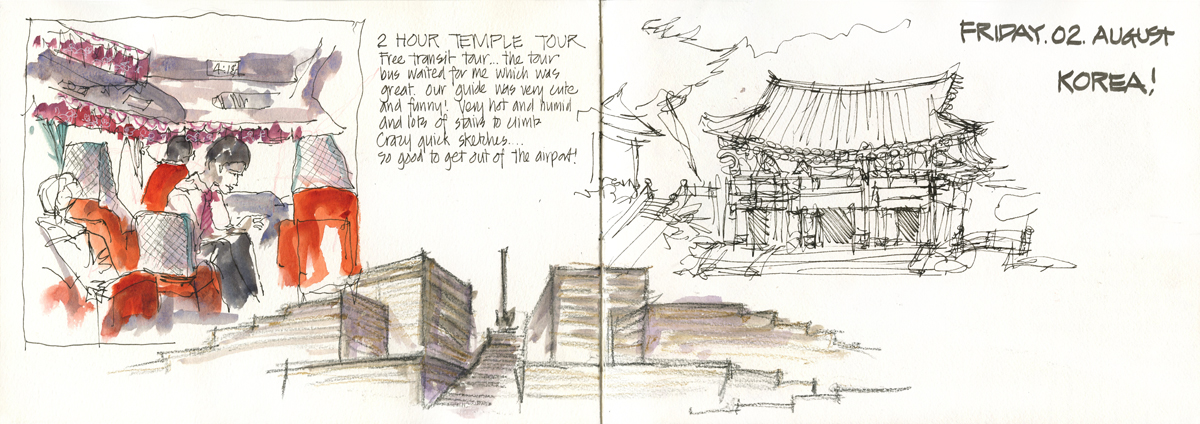 2 HOUR TEMPLE TOUR
Free transit tour... the tour
bus waited for me which was
great. our guide was very cute
and funny! Very hot and humid
and lots of stairs to climb
Crazy quick sketches....
so good to get out of the airport!
FRIDAY. 02. AUGUST
KOREA!
4:18